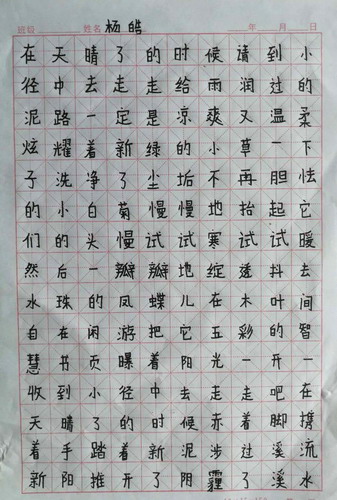 班级 姓名 杨皓 年 月 日
在天晴了的时候请到小
径中去走走给雨润过的
泥路一定是凉爽又温柔
炫耀着新绿的小草一下
子洗净了尘垢不再胆怯
的小白菊慢慢地抬起它
们的头慢试试寒试试暖
然后一瓣瓣地绽透抖去
水珠的凤蝶儿在木叶间
自在闲游把它五彩的智
慧书页曝着阳光一开一
收到小径中去走走吧在
天晴了的时候赤着脚携
着手踏着新泥涉过溪流
新阳推开了阴霾了溪水